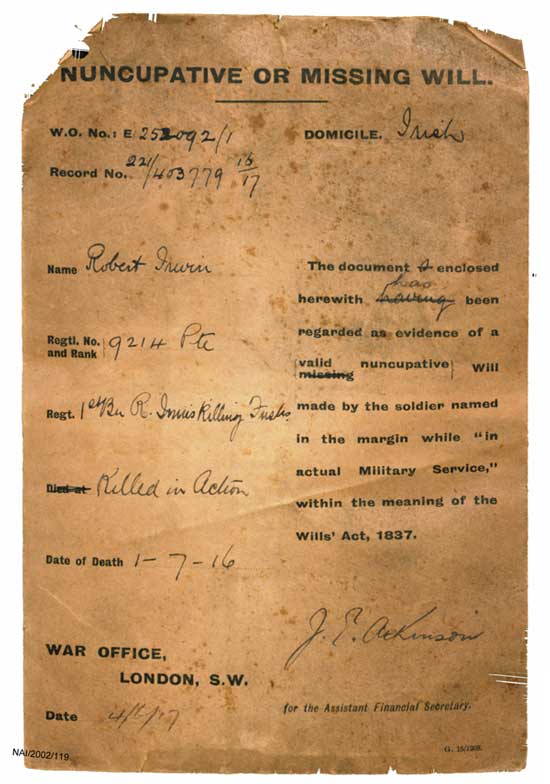 NUNCUPATIVE OR MISSING WILL.
W.O. No.: E 252092/1
DOMICILE. Irish
Record No. 221/403779 16/17
Name Robert Irwin
Regtl. No. and Rank 9214 Pte
Regt. 1st Bn R. Inniskilling Fusls.
Died at Killed in Action
Date of Death 1-7-16
The document s enclosed
herewith having has been
regarded as evidence of a
valid missing nuncupative Will
made by the soldier named
in the margin while "in
actual Military Service,"
within the meaning of the
Wills' Act, 1837.
J. E. Ackinson
WAR OFFICE,
LONDON, S.W.
for the Assistant Financial Secretary.
Date
NAI/2002/119